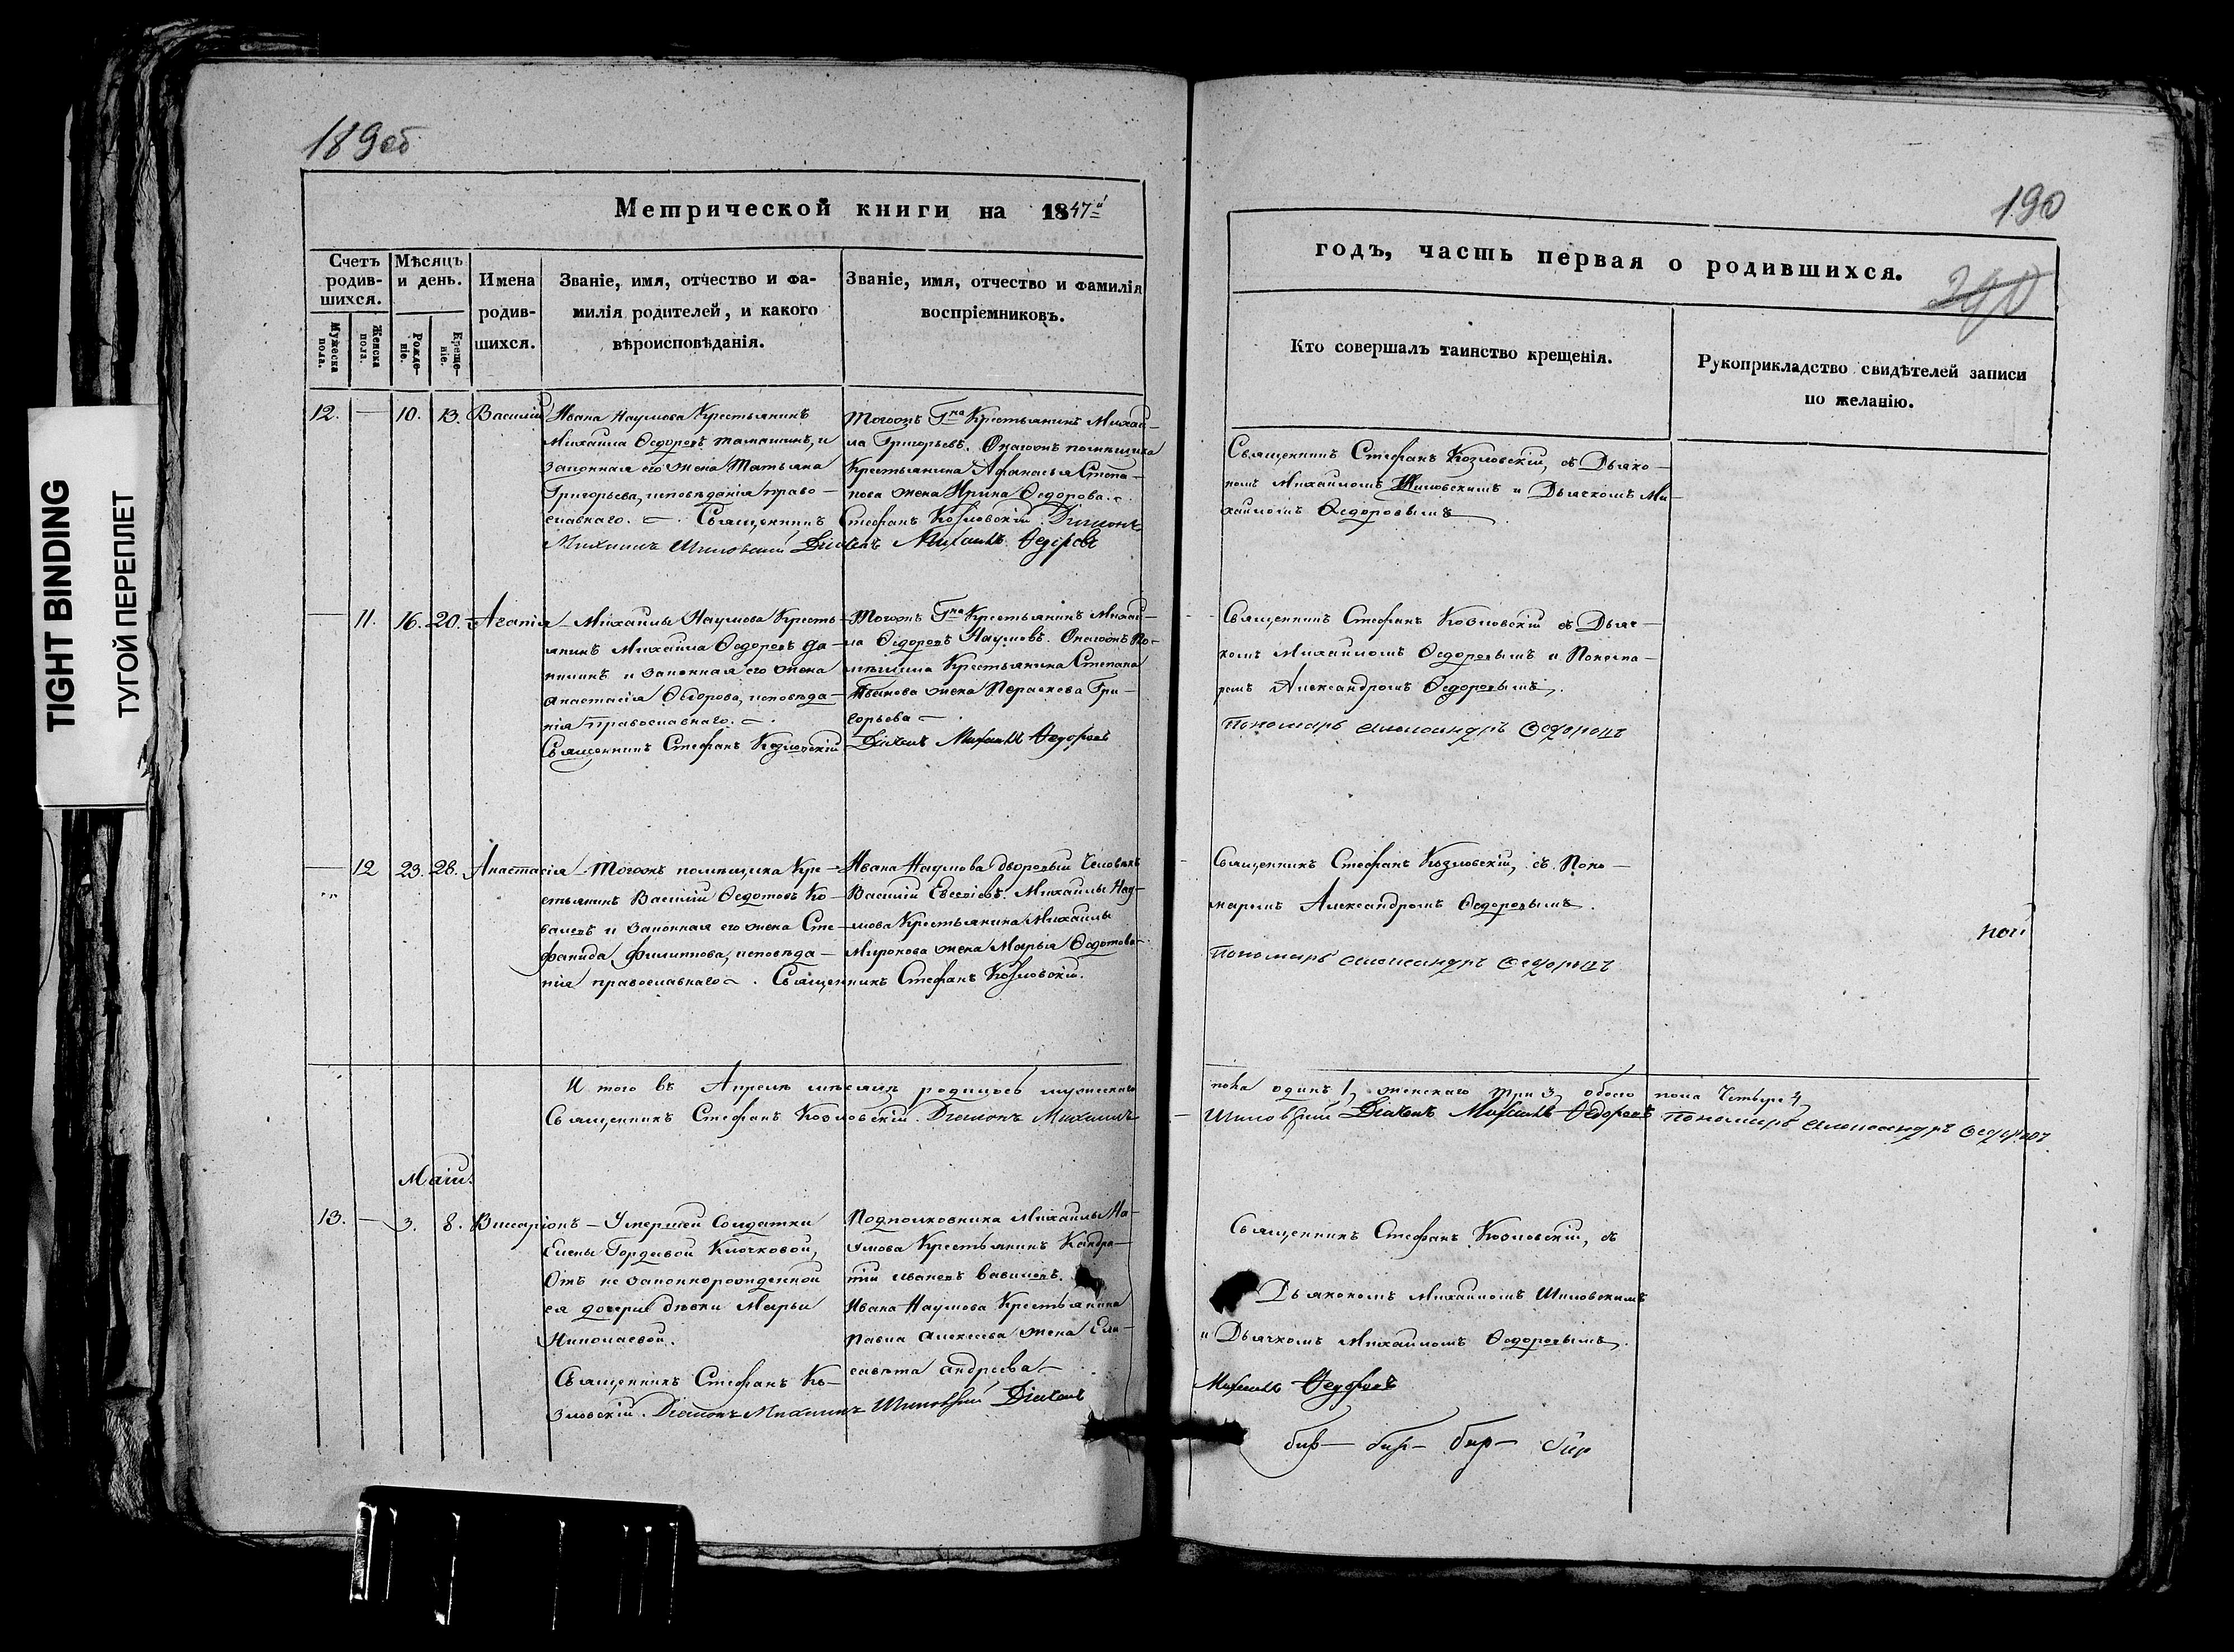 189об
Метрической книги на 1847й
Счетъ родив-шихся.
Мужеска пола.
Женска пола.
Мѣсяцъ и день.
Рожде-ніе.
Креще-ніе.
Имена родив-шихся.
Званіе, имя, отчество и фа-
милія родителей, и какого
вѣроисповѣданія.
Званіе, имя, отчество и фамилія
воспріемниковъ.
12. — 10. 13. Василій
Ивана Наумова Крестьянинъ
Михаила Ѳедоровъ и
законная его жена Татьяна
Григорьева, исповѣданія право-
славнаго. Священникъ Стефанъ Козловскій. Діаконъ
Михаилъ Шиловскій Дьячекъ Михаилъ Ѳедоровъ
Тогожъ Гна Крестьянинъ Михаи-
ла Григорьевъ. Онагожъ помѣщика
Крестьянина Афанасья Степа-
нова жена Ирина Ѳедорова.
— 11. 16. 20. Агапія
Михаилы Наумова Кресть-
янинъ Михаила Ѳедоровъ
и законная его жена
Анастасія Ѳедорова, исповѣда-
нія православнаго.
Священникъ Стефанъ Козловскій
Тогожъ Гна Крестьянинъ Михаи-
ла Ѳедоровъ Наумовъ. Онагожъ По-
мѣщика Крестьянина Степана
Иванова жена Параскева Гри-
горьева
Дьячекъ Михаилъ Ѳедоровъ
— 12 23. 28. Анастасія
Тогожъ помѣщика Кре-
стьянинъ Василій Ѳедотовъ Ко-
валевъ и законная его жена Сте-
фанида Филиппова, исповѣда-
нія православнаго. Священникъ Стефанъ Козловскій.
Ивана Наумова дворовый Человѣкъ
Василій Евсеіевъ. Михаилы Нау-
мова Крестьянина Михаилы
Миронова жена Марья Ѳедотова
И того въ Апрелѣ мѣсяцѣ родилось мужескаго
Священникъ Стефанъ Козловскій. Діаконъ Михаилъ
Маій.
13. — 3. 8. Виссаріонъ
Умершей Солдатки
Елены Гордѣвой Клочковой,
Отъ незаконнорожденной
ея дочери дѣвки Марьи
Николаевой.
Священникъ Стефанъ Ко-
зловскій. Діаконъ Михаилъ Шиловскій Дьячекъ
Подполковника Михаилы На-
умова Крестьянинъ Кондра-
тій Ивановъ Вавиловъ.
Ивана Наумова Крестьянина
Павла Алексеева жена Ели-
савета Андреева
190
годъ, часть первая о родившихся.
290
Кто совершалъ таинство крещенія.
Рукоприкладство свидѣтелей записи
по желанію.
Священникъ Стефанъ Козловскій, съ Дьяко-
номъ Михаиломъ Шиловскимъ и Дьячкомъ Ми-
хаиломъ Ѳедоровымъ
Священникъ Стефанъ Козловскій съ Дьяч-
комъ Михаиломъ Ѳедоровымъ и Понома-
ремъ Александромъ Ѳедоровымъ.
Пономарь Александръ Ѳедоровъ
Священникъ Стефанъ Козловскій, съ Поно-
маремъ Александромъ Ѳедоровымъ.
Пономарь Александръ Ѳедоровъ
пола одинъ 1, женскаго три 3, обоего пола Четыре 4
Шиловскій Дьячекъ Михаилъ Ѳедоровъ Пономарь Александръ Ѳедоровъ
Священникъ Стефанъ Козловскій, съ
Дьякономъ Михаиломъ Шиловскимъ
и Дьячкомъ Михаиломъ Ѳедоровымъ.
Михаилъ Ѳедоровъ
TIGHT BINDING
ТУГОЙ ПЕРЕПЛЕТ